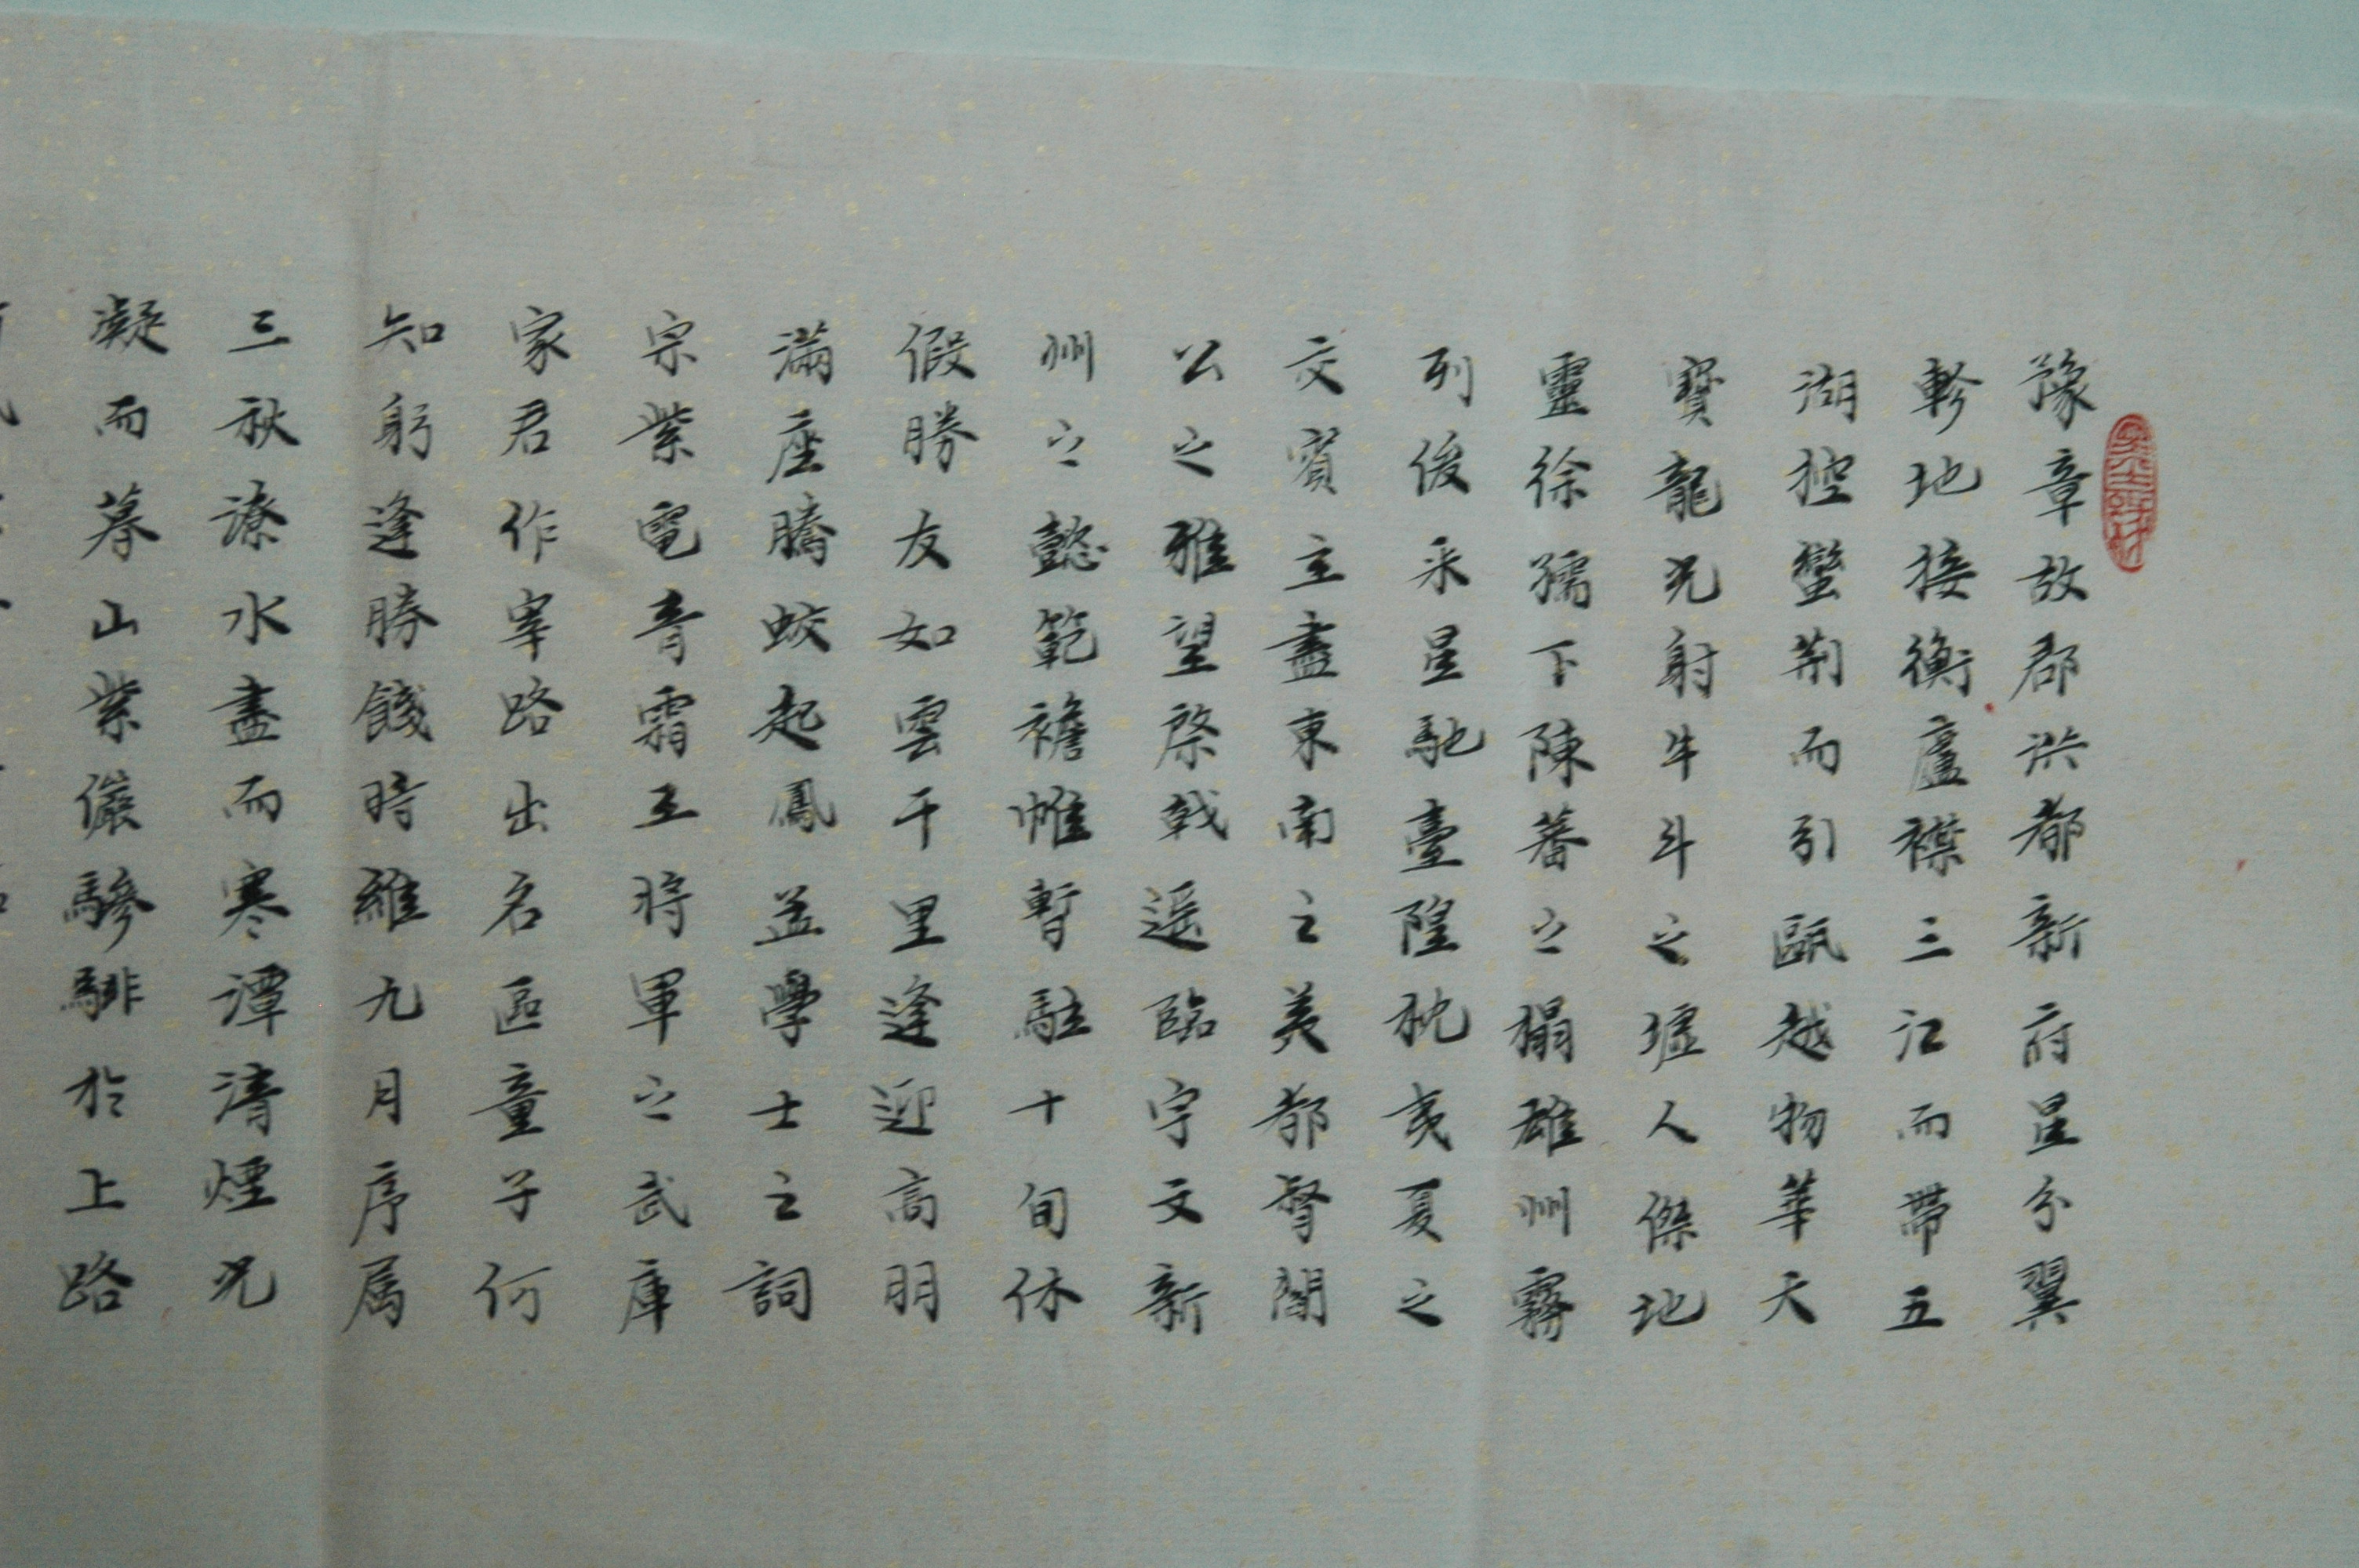 豫章故郡洪都新府星分翼
軫地接衡廬襟三江而帶五
湖控蠻荊而引甌越物華天
寶龍光射牛斗之墟人傑地
靈徐孺下陳蕃之榻雄州霧
列俊采星馳臺隍枕夷夏之
交賓主盡東南之美都督閻
公之雅望棨戟遙臨宇文新
州之懿範襜帷暫駐十旬休
假勝友如雲千里逢迎高朋
滿座騰蛟起鳳孟學士之詞
宗紫電青霜王將軍之武庫
家君作宰路出名區童子何
知躬逢勝餞時維九月序屬
三秋潦水盡而寒潭清煙光
凝而暮山紫儼驂騑於上路